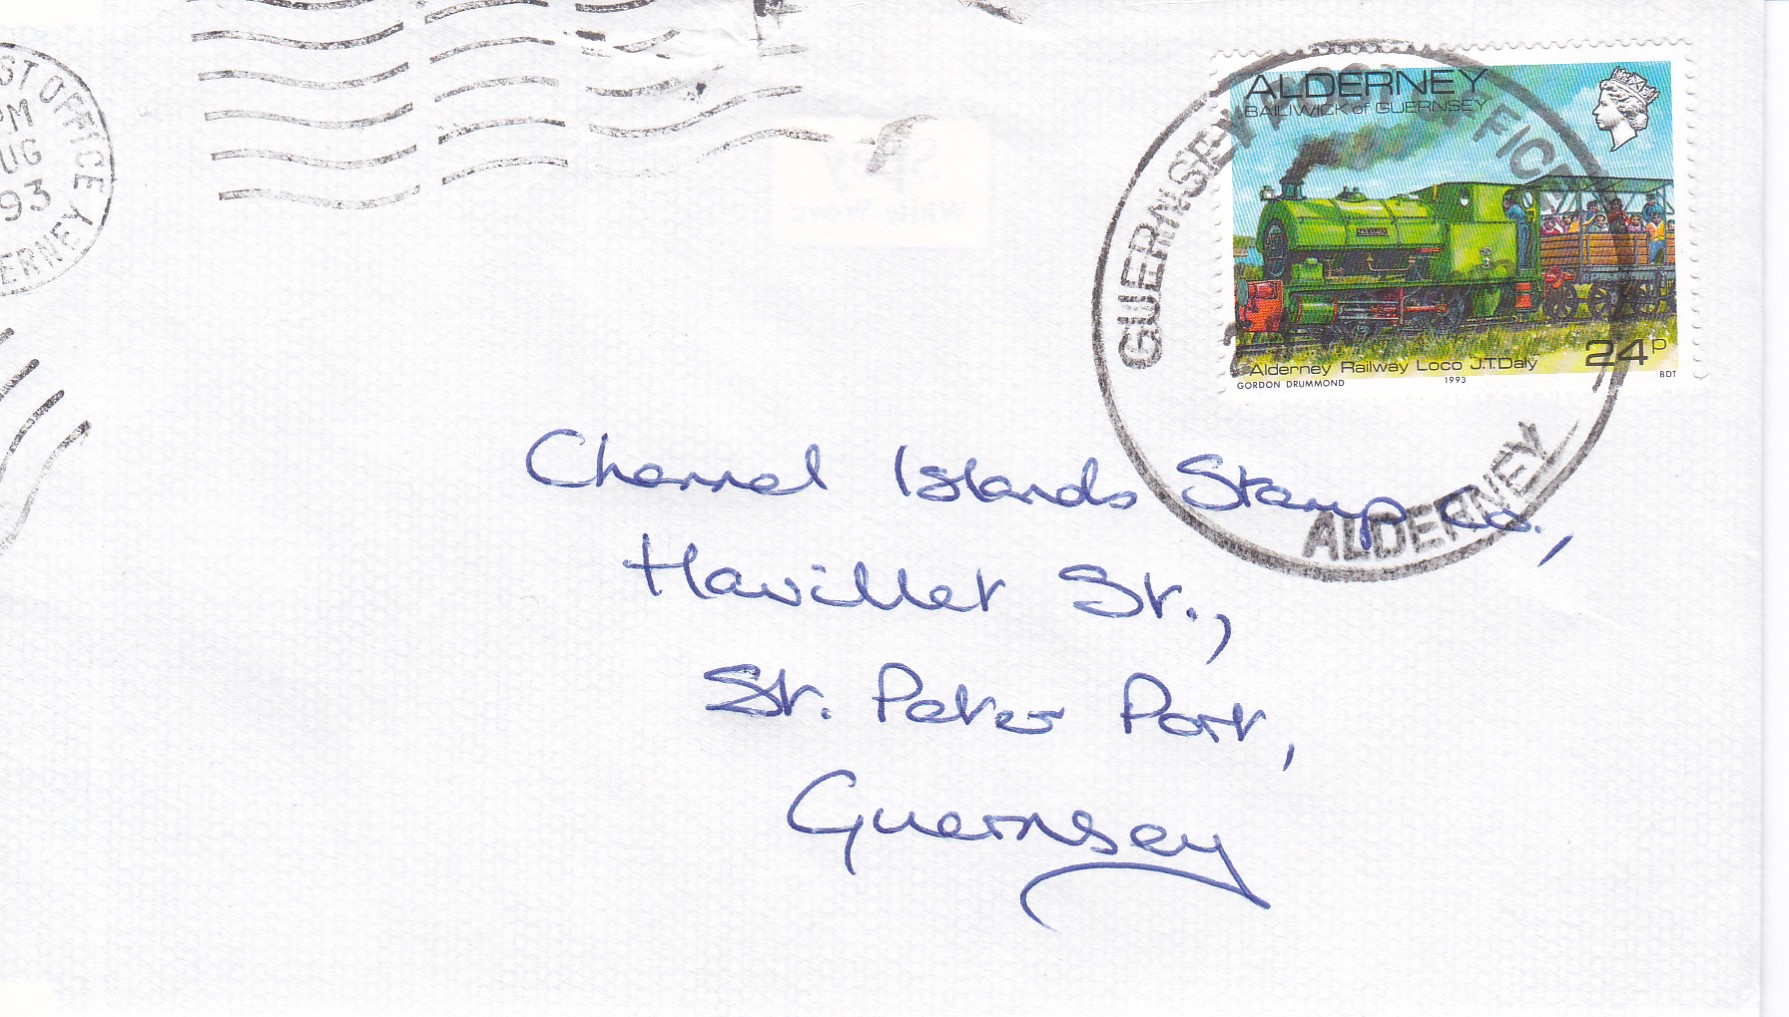 ST OFFICE
PM
UG
93
ERNEY
GUERNSEY POST OFFICE
ALDERNEY
ALDERNEY
BAILIWICK of GUERNSEY
Alderney Railway Loco J.T.Daly
24P
GORDON DRUMMOND
1993
BDT
Channel Islands Stamp Co.,
Havillet St.,
St. Peter Port,
Guernsey